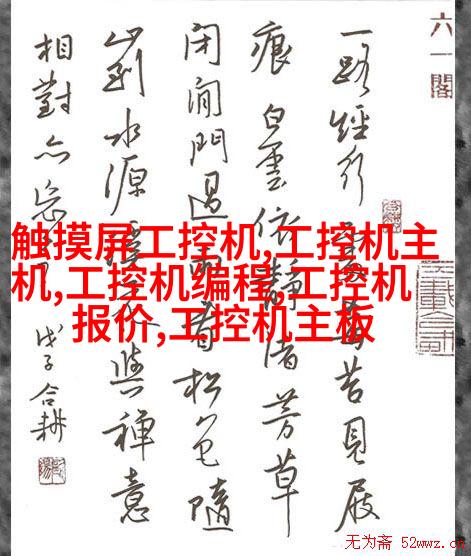 六一閣
一路經行處莓苔見屐
痕白雲依靜渚芳草
閉閒門過雨看松色隨
山到水源溪花與禪意
相對亦忘言
戊子合耕
触摸屏工控机,工控机主
机,工控机编程,工控机
报价,工控机主板
无为斋 52wwz.c